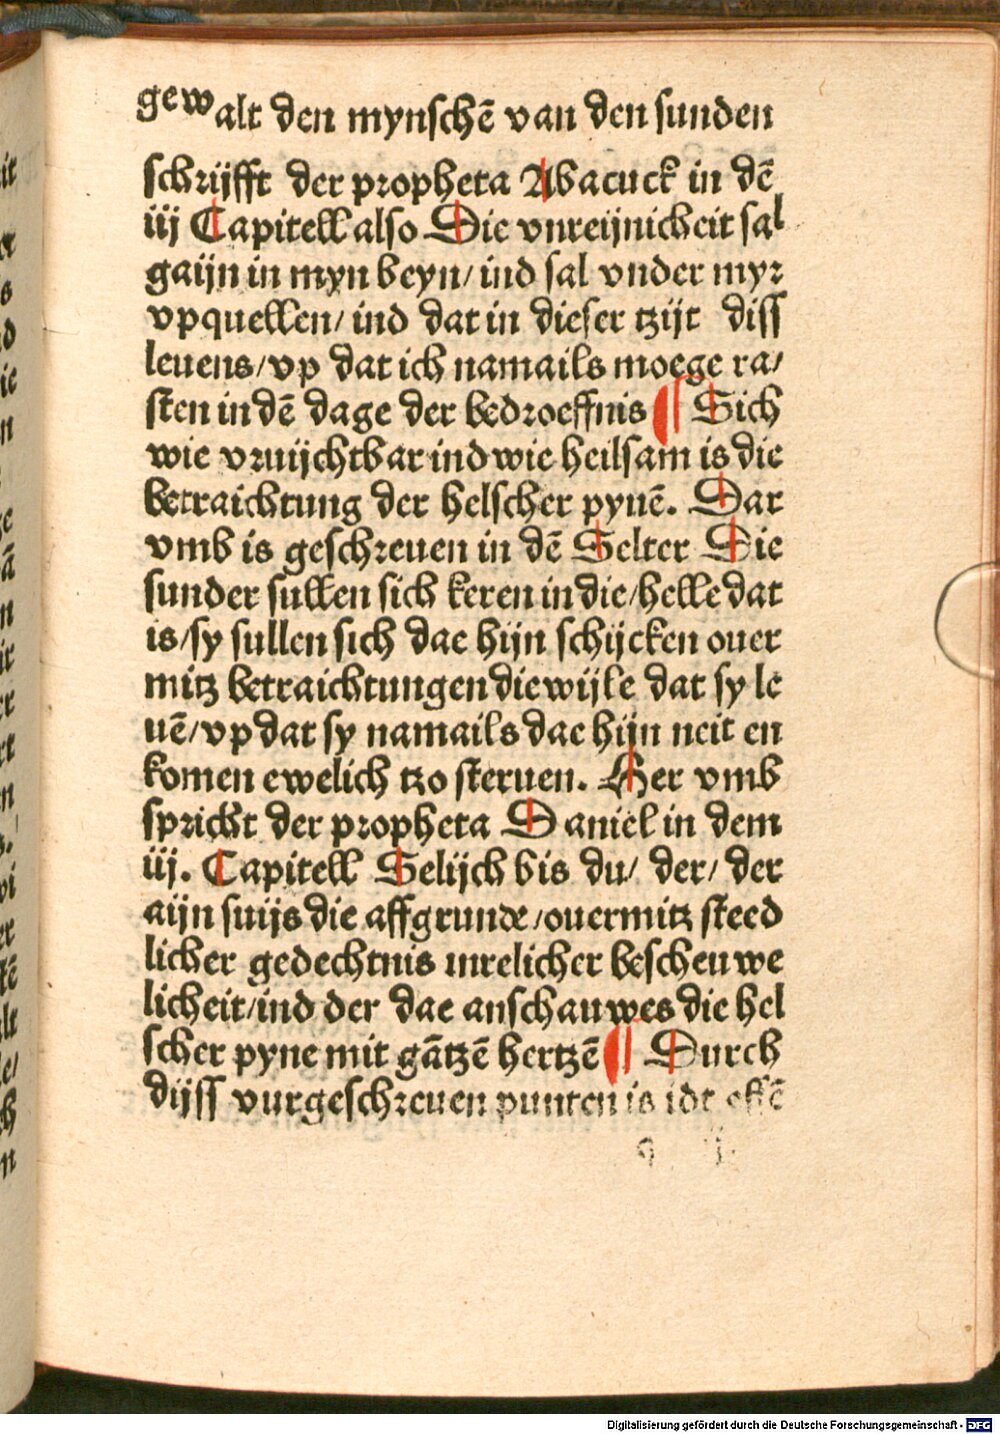 gewalt den mynschē van den sunden
schrijfft der propheta Abacuck in dē
iij Capitell also Die vnreijnicheit sal
gaijn in myn beyn/ ind sal vnder myr
vpquellen/ ind dat in dieser tzijt diss
leuens/ vp dat ich namails moege ra/
sten in dē dage der bedroeffnis ¶ Sich
wie vruijchtbar ind wie heilsam is die
betraichtung der helscher pynē. Dar
vmb is geschreuen in dē Selter Die
sunder sullen sich keren in die/ helle dat
is/ sy sullen sich dae hijn schijcken ouer
mitz betraichtungen die wijle dat sy le
uē/ vp dat sy namails dae hijn neit en
komen ewelich tzo steruen. Her vmb
spricht der propheta Daniel in dem
iij. Capitell Selijch bis du/ der/ der
aijn suijs die affgrunde/ ouermitz steed
licher gedechtnis inrelicher bescheuwe
licheit/ ind der dae anschauwes die hel
scher pyne mit gātzē hertzē ¶ Durch
dijss vurgeschreuen punten is idt offē
q ij.
Digitalisierung gefördert durch die Deutsche Forschungsgemeinschaft - DFG